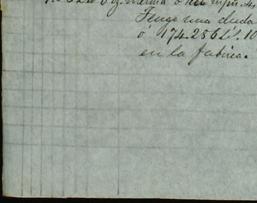 Tengo una duda
ó 174.256 lbs. 10
en la fabrica.